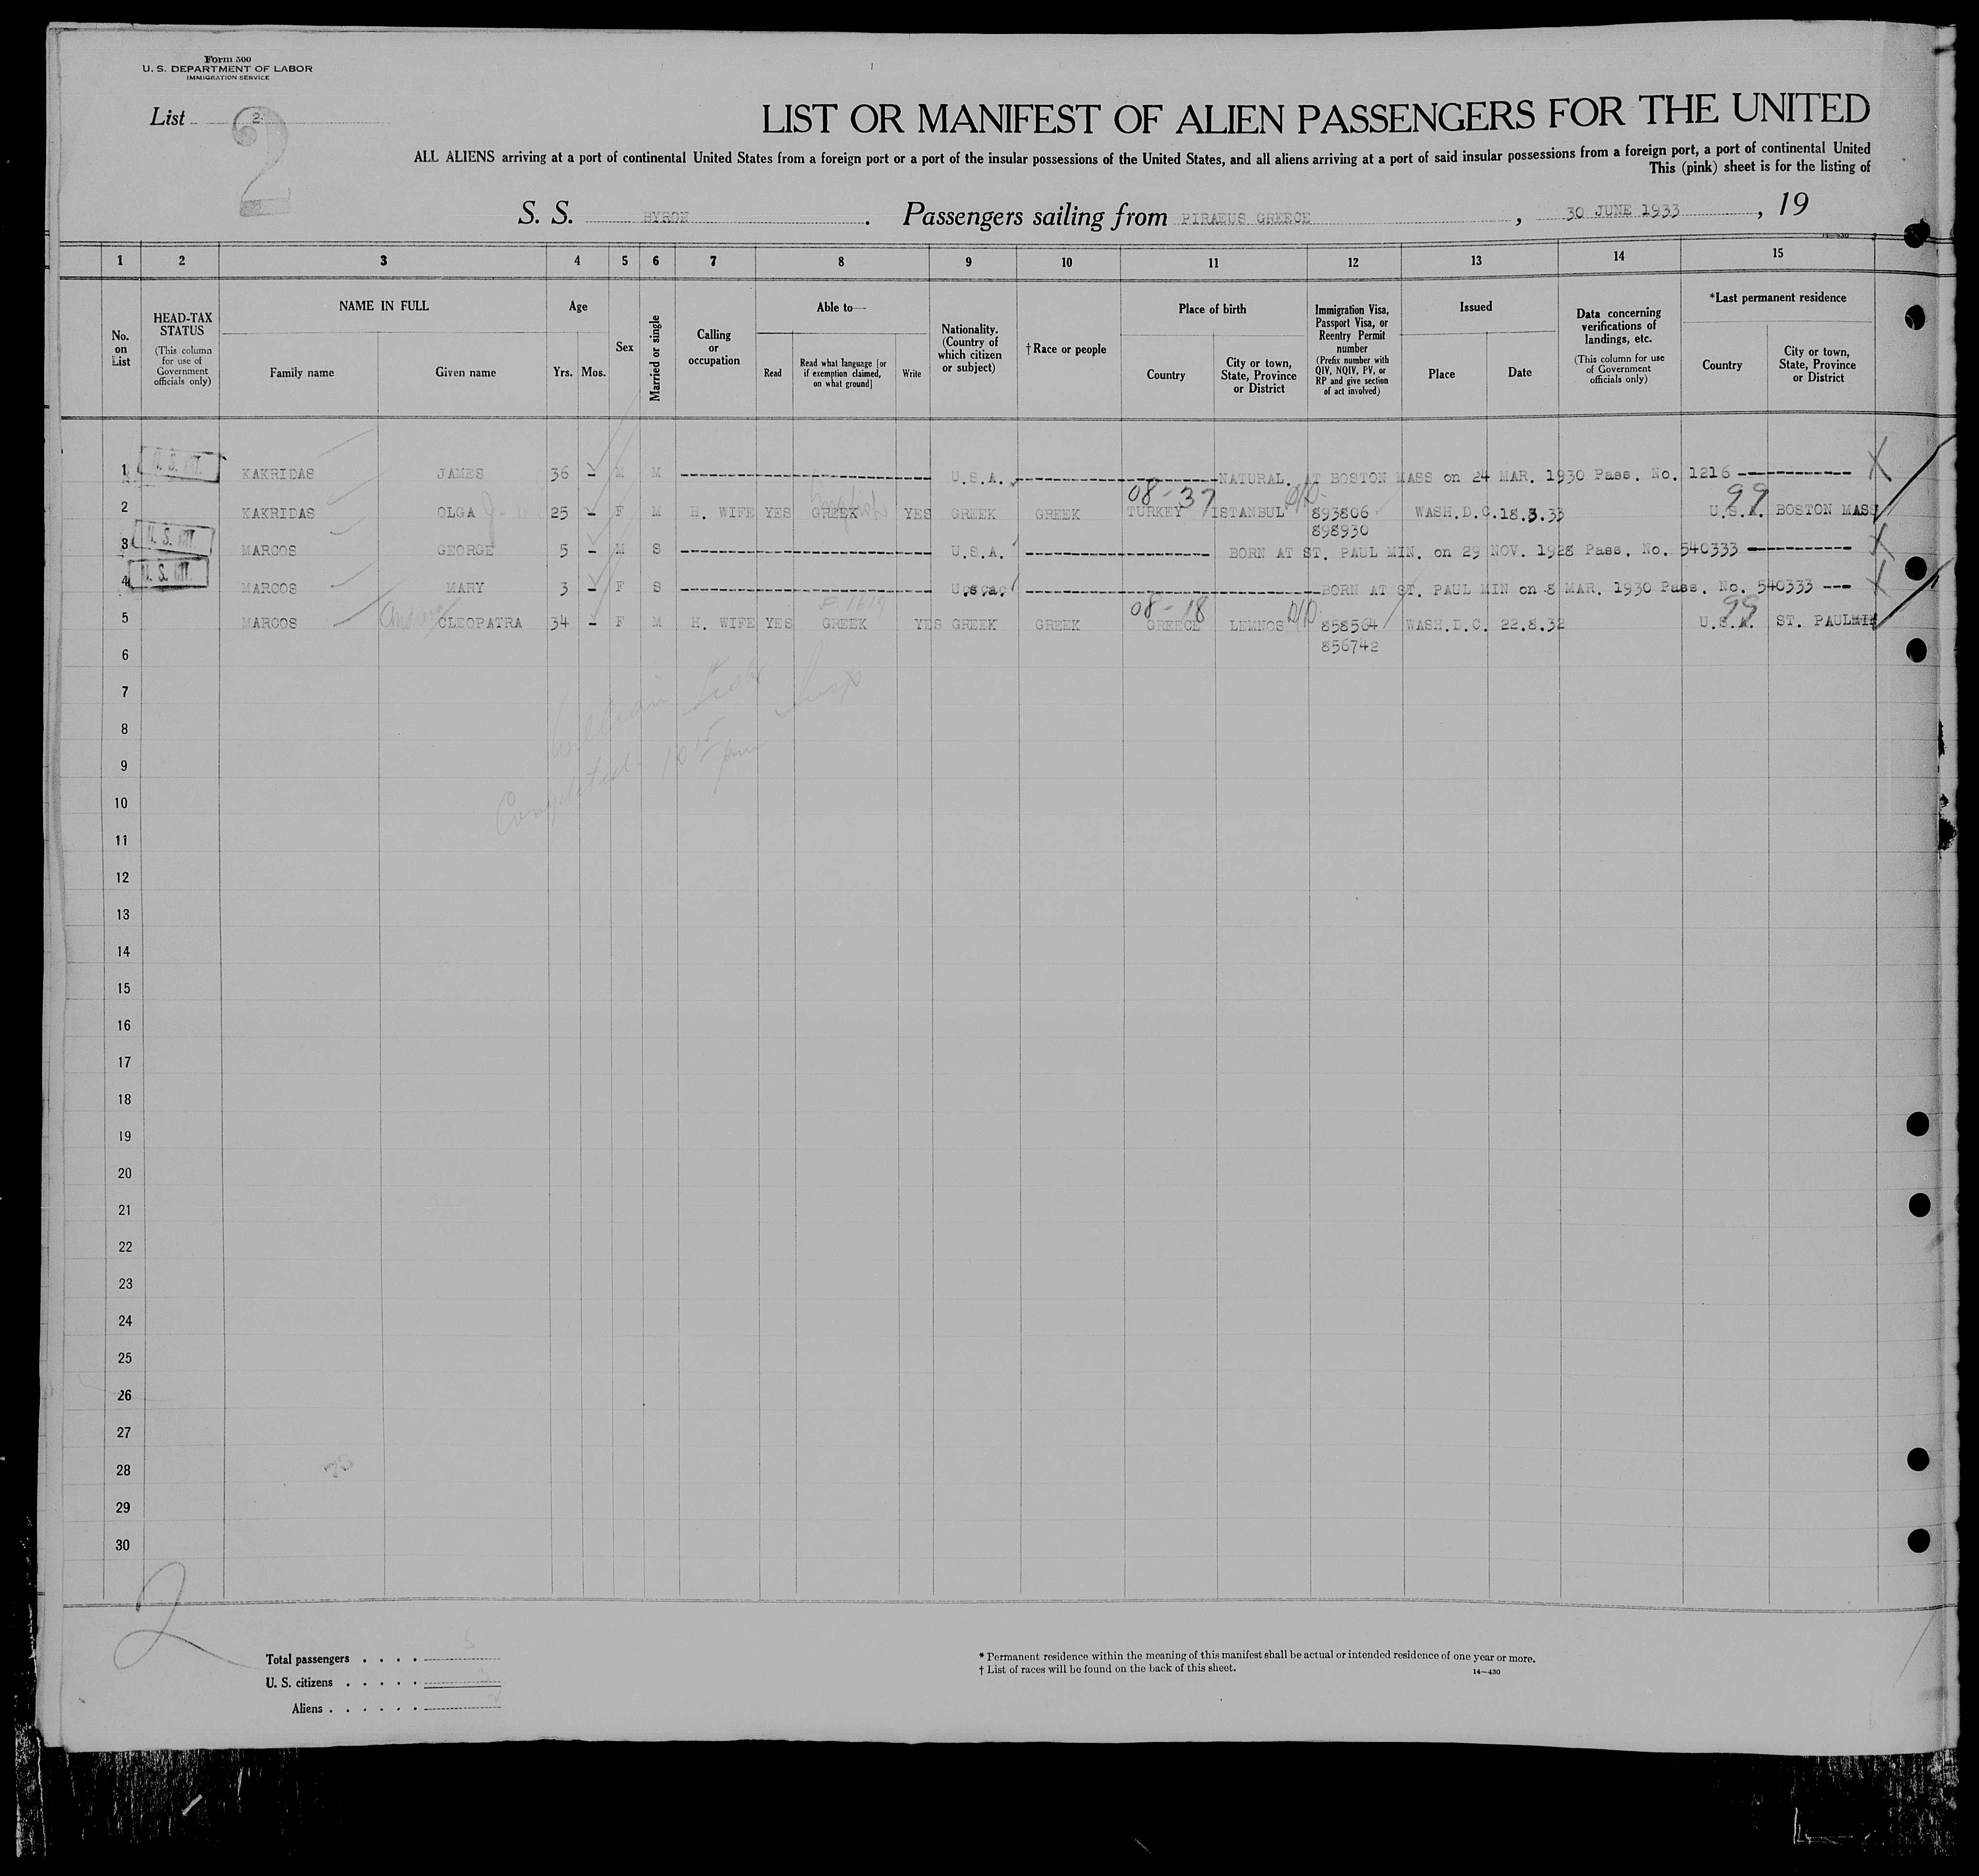 Form 500
U. S. DEPARTMENT OF LABOR
IMMIGRATION SERVICE
List 2
2
LIST OR MANIFEST OF ALIEN PASSENGERS FOR THE UNITED
ALL ALIENS arriving at a port of continental United States from a foreign port or a port of the insular possessions of the United States, and all aliens arriving at a port of said insular possessions from a foreign port, a port of continental United
This (pink) sheet is for the listing of
S. S. BYRON. Passengers sailing from PIRAEUS GREECE, 30 JUNE 1933, 19
14—430
1 2 3 4 5 6 7 8 9 10 11 12 13 14 15
No. on List
HEAD-TAX STATUS (This column for use of Government officials only)
NAME IN FULL Family name Given name
Age Yrs. Mos.
Sex
Married or single
Calling or occupation
Able to— Read Read what language [or if exemption claimed, on what ground] Write
Nationality. (Country of which citizen or subject)
† Race or people
Place of birth Country City or town, State, Province or District
Immigration Visa, Passport Visa, or Reentry Permit number (Prefix number with QIV, NQIV, PV, or RP and give section of act involved)
Issued Place Date
Data concerning verifications of landings, etc. (This column for use of Government officials only)
*Last permanent residence Country City or town, State, Province or District
1 U. S. CIT. KAKRIDAS JAMES 36 – M M U.S.A. NATURAL. AT BOSTON MASS on 24 MAR. 1930 Pass. No. 1216 X
08-37 99
2 KAKRIDAS OLGA 25 – F M H. WIFE YES GREEK YES GREEK GREEK TURKEY ISTANBUL 893806 WASH.D.C. 18.3.33 U.S.A. BOSTON MASS
898930
3 U. S. CIT. MARCOS GEORGE 5 – M S U.S.A. BORN AT ST. PAUL MIN. on 29 NOV. 1928 Pass. No. 540333 X
4 U. S. CIT. MARCOS MARY 3 – F S BORN AT ST. PAUL MIN on 8 MAR. 1930 Pass. No. 540333 X
08-18 99
5 MARCOS CLEOPATRA 34 – F M H. WIFE YES GREEK YES GREEK GREEK GREECE LEMNOS 858564 WASH.D.C. 22.8.32 U.S.A. ST. PAUL MIN
856742
6
7
8
9
Completed 10 15
10
11
12
13
14
15
16
17
18
19
20
21
22
23
24
25
26
27
28
29
30
2
Total passengers . . . . 5
U. S. citizens . . . . . 3
Aliens . . . . . . 2
* Permanent residence within the meaning of this manifest shall be actual or intended residence of one year or more.
† List of races will be found on the back of this sheet.
14—430